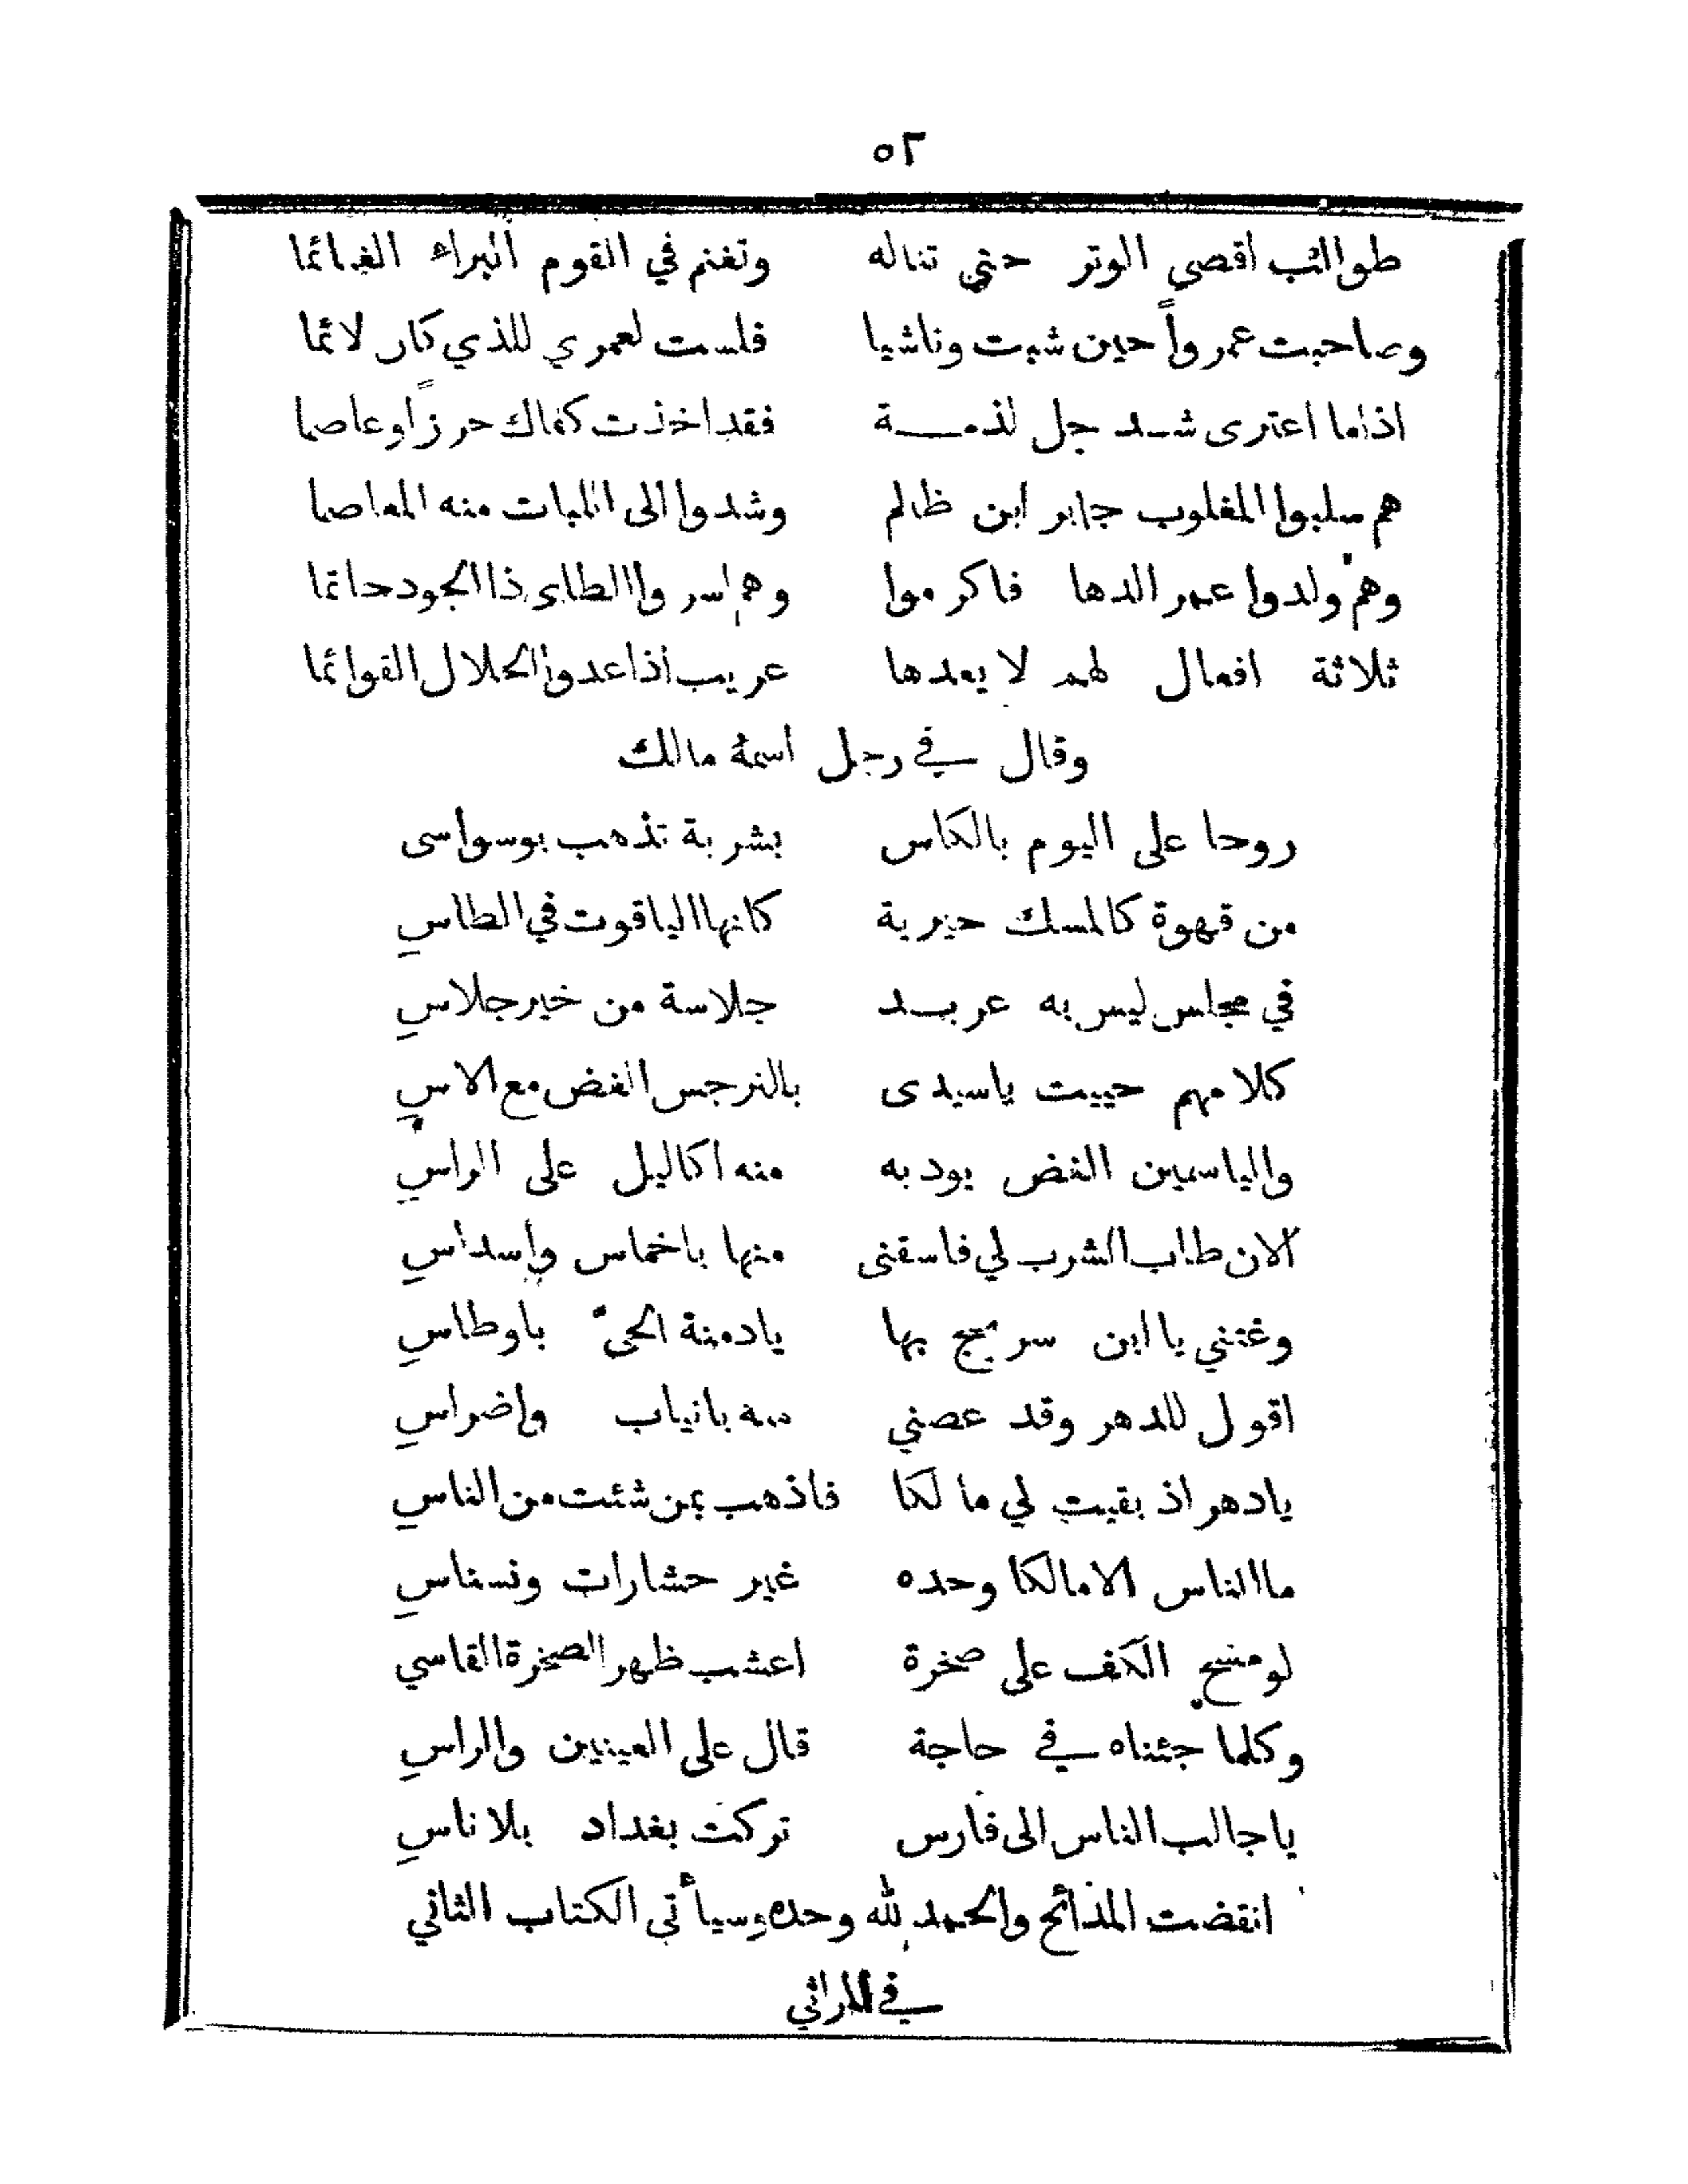 ٥٢
طوالب اقصى الوتر حتى تناله وتغنم في القوم البراء الغنائما
وصاحبت عمرواً حين شبت وناشيا فلست لعمري للذي كان لائما
اذا ما اعترى شد جل لذمة فقد اخذت كفاك حرزاً وعاصما
هم سلبوا المغلوب جابر ابن ظالم وشدوا الى اللبات منه المعاصما
وهم ولدوا عمر الدها فاكرموا وهم اسروا الطاي ذا الجود حاتما
ثلاثة افعال لهم لا يعدها عريب اذا عدوا الحلال القوائما
وقال في رجل اسمهُ مالك
روحا على اليوم بالكاس بشربة تذهب بوسواسى
من قهوة كالمسك حيرية كانها الياقوت في الطاسِ
في مجلس ليس به عربد جلاسة من خير جلاسِ
كلامهم حييت ياسيدى بالنرجس الغض مع الاسِ
والياسمين الغض يود به منه اكاليل على الراسِ
الان طاب الشرب لي فاسقنى منها باخماس واسداسِ
وغنني يا ابن سريج بها يادمنة الحىّ باوطاسِ
اقول للدهر وقد عضني منه بانياب واضراسِ
يادهر اذ بقيت لي مالكا فاذهب بمن شئت من الناسِ
ما الناس الا مالكا وحده غير حشارات ونسناسِ
لو مسح الكف على صخرة اعشب ظهر الصخرة القاسي
وكلما جئناه في حاجة قال على العينين والراسِ
يا جالب الناس الى فارس تركت بغداد بلا ناسِ
انقضت المدائح والحمد لله وحده وسيأتي الكتاب الثاني
في المراثي